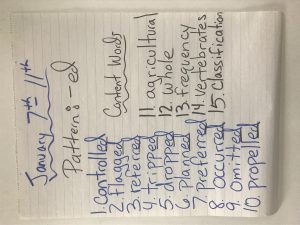 January 7th - 11th
Pattern: -ed
1. Controlled
2. Flagged
3. referred
4. tripped
5. dropped
6. Planned
7. Preferred
8. Occurred
9. Omitted
10. propelled
Content Words
11. agricultural
12. whole
13. frequency
14. Vertebrates
15. Classification